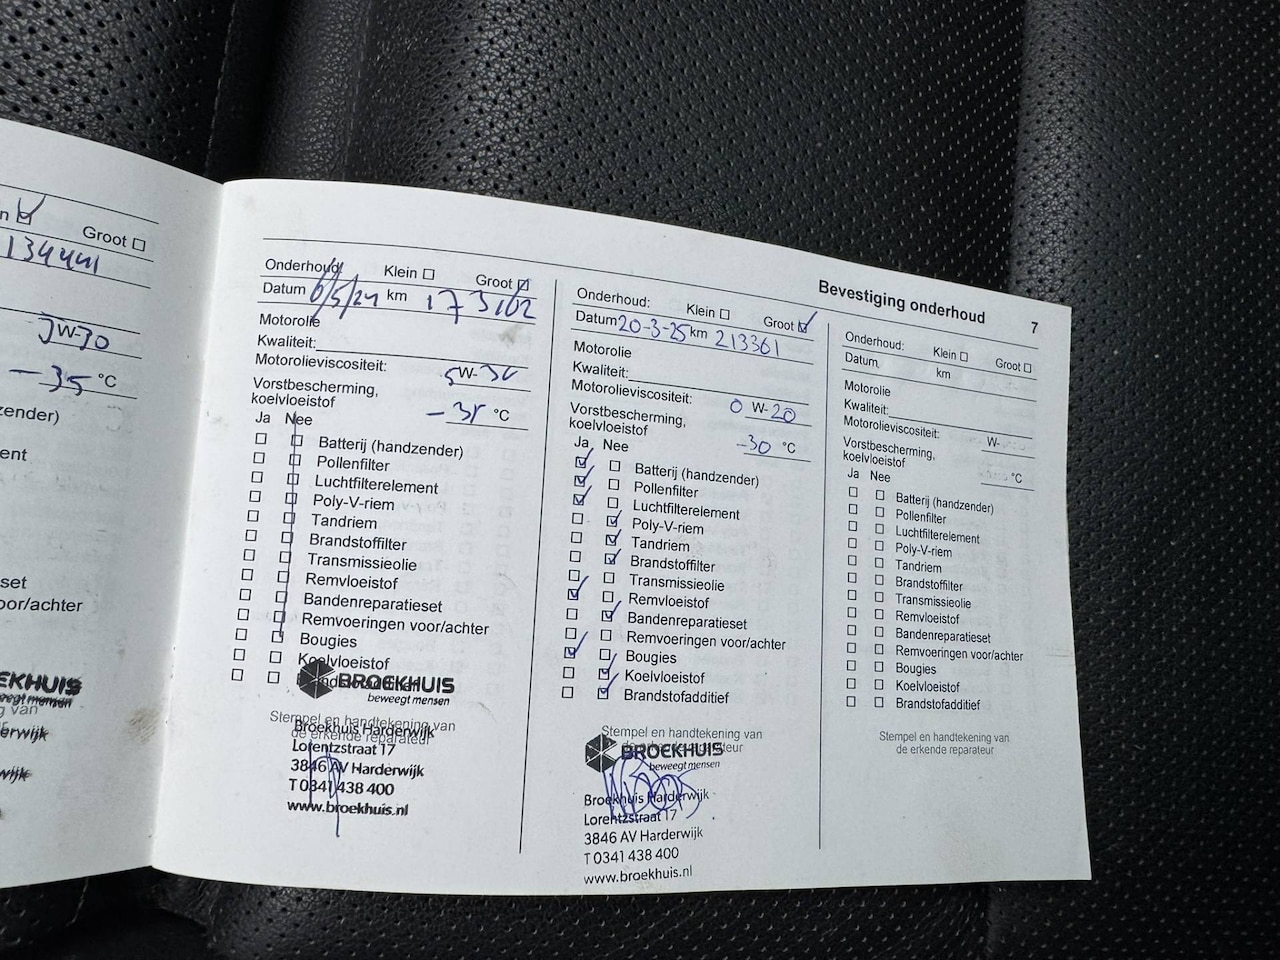 n Groot
134441
JW-30
-35 °C
zender)
ent
set
oor/achter
EKHUIS
beweegt mensen
g van
erwijk
wijk
Bevestiging onderhoud 7
Onderhoud: Klein Groot
Datum 6/5/24 km 173162
Motorolie
Kwaliteit:
Motorolieviscositeit: 5W-30
Vorstbescherming,
koelvloeistof -35 °C
Ja Nee
Batterij (handzender)
Pollenfilter
Luchtfilterelement
Poly-V-riem
Tandriem
Brandstoffilter
Transmissieolie
Remvloeistof
Bandenreparatieset
Remvoeringen voor/achter
Bougies
Koelvloeistof
BROEKHUIS
beweegt mensen
Stempel en handtekening van
de erkende reparateur
Broekhuis Harderwijk
Lorentzstraat 17
3846 AV Harderwijk
T 0341 438 400
www.broekhuis.nl
Onderhoud: Klein Groot
Datum 20-3-25 km 213361
Motorolie
Kwaliteit:
Motorolieviscositeit: 0 W-20
Vorstbescherming,
koelvloeistof -30 °C
Ja Nee
Batterij (handzender)
Pollenfilter
Luchtfilterelement
Poly-V-riem
Tandriem
Brandstoffilter
Transmissieolie
Remvloeistof
Bandenreparatieset
Remvoeringen voor/achter
Bougies
Koelvloeistof
Brandstofadditief
Stempel en handtekening van
de erkende reparateur
BROEKHUIS
beweegt mensen
Broekhuis Harderwijk
Lorentzstraat 17
3846 AV Harderwijk
T 0341 438 400
www.broekhuis.nl
Onderhoud: Klein Groot
Datum km
Motorolie
Kwaliteit:
Motorolieviscositeit: W-
Vorstbescherming,
koelvloeistof °C
Ja Nee
Batterij (handzender)
Pollenfilter
Luchtfilterelement
Poly-V-riem
Tandriem
Brandstoffilter
Transmissieolie
Remvloeistof
Bandenreparatieset
Remvoeringen voor/achter
Bougies
Koelvloeistof
Brandstofadditief
Stempel en handtekening van
de erkende reparateur